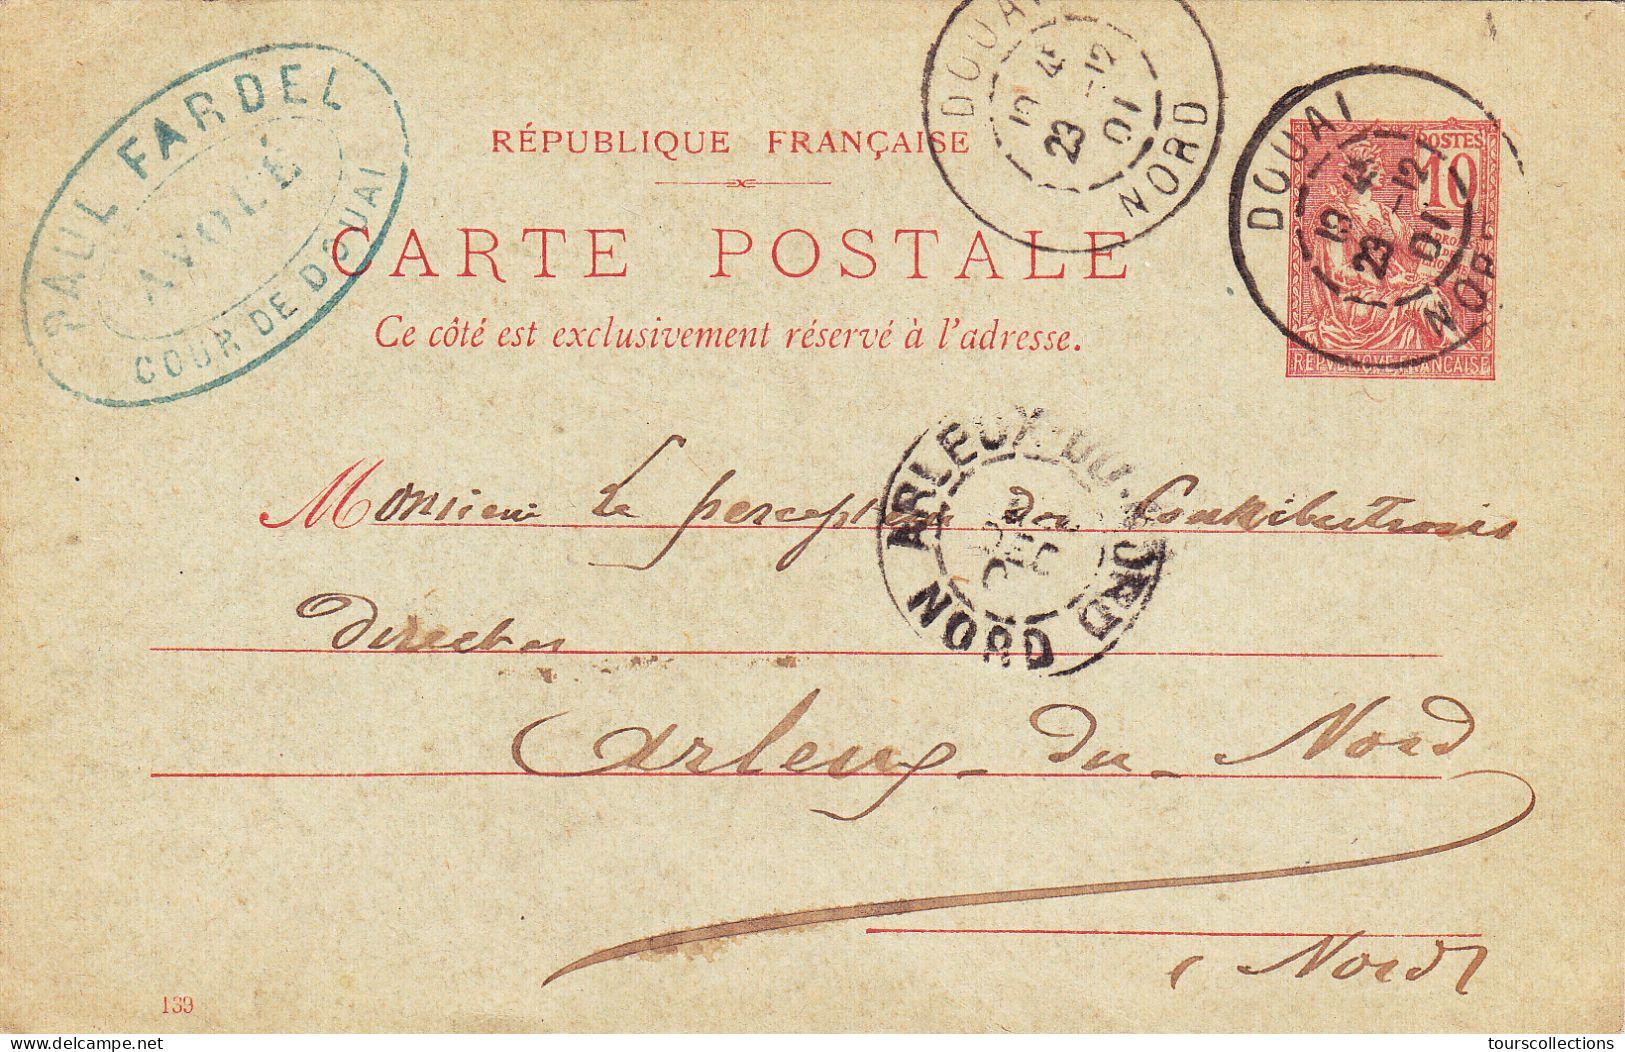 PAUL FARDEL
AVOUÉ
COUR DE DOUAI
RÉPUBLIQUE FRANÇAISE
CARTE POSTALE
Ce côté est exclusivement réservé à l'adresse.
DOUAI
19 45
23 -12
01
NORD
DOUAI
19 45
23 -12
01
NORD
POSTES
10
REPUBLIQUE FRANÇAISE
ARLEUX-DU-NORD
DEC
NORD
Monsieur Le percepteur Des Contributions
Directes
Arleux-du-Nord
(Nord)
139
www.delcampe.net
tourscollections